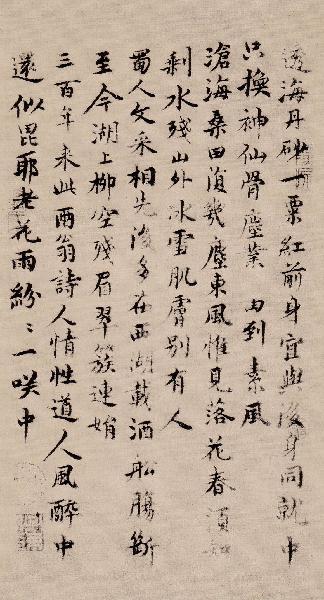 透海丹砂一粟紅前身宜與後身同就中
只換神仙骨塵業由到素風
滄海桑田復幾塵東風惟見落花春須
剩水殘山外冰雪肌膚別有人
蜀人文采相先後多在西湖載酒船腸斷
至今湖上柳空殘眉翠簇連娟
三百年來此兩翁詩人情性道人風醉中
還似毘耶老花雨紛〻一咲中